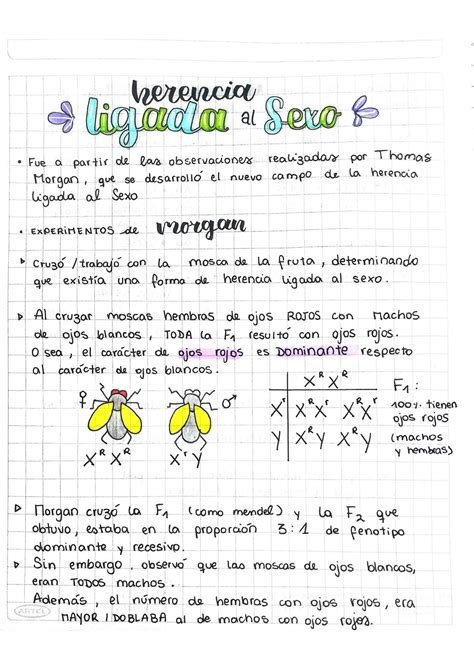 herencia
ligada al Sexo
• Fue a partir de las observaciones realizadas por Thomas
Morgan, que se desarrolló el nuevo campo de la herencia
ligada al Sexo
• EXPERIMENTOS de morgan
▸ Cruzó / trabajó con la mosca de la fruta, determinando
que existía una forma de herencia ligada al sexo.
▸ Al cruzar moscas hembras de ojos ROJOS con machos
de ojos blancos, TODA la F₁ resultó con ojos rojos.
O sea, el carácter de ojos rojos es DOMINANTE respecto
al carácter de ojos blancos.
♀ ♂
Xᴿ Xᴿ Xʳ Y
Xᴿ Xᴿ
Xʳ XᴿXʳ XᴿXʳ
Y XᴿY XᴿY
F₁:
100% tienen
ojos rojos
(machos
y hembras)
▸ Morgan cruzó la F₁ (como mendel) y la F₂ que
obtuvo, estaba en la proporción 3:1 de fenotipo
dominante y recesivo.
▸ Sin embargo, observó que las moscas de ojos blancos,
eran TODOS machos.
Además, el número de hembras con ojos rojos, era
MAYOR / DOBLABA al de machos con ojos rojos.